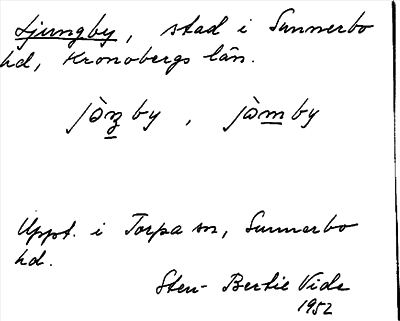 Ljungby, stad i Sunnerbo
hd, Kronobergs län.
jòŋby, jòmby
Uppt. i Torpa sn, Sunnerbo
hd.
Sten-Bertil Vide
1952